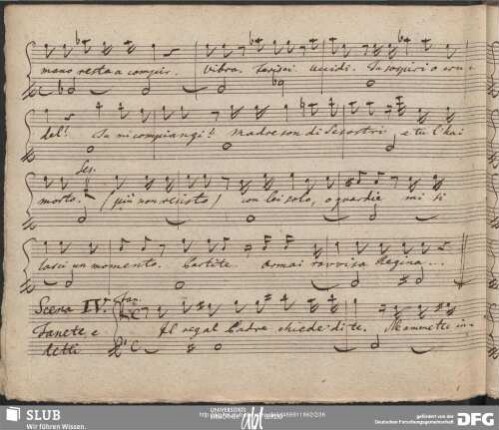 mano resta a compir. Vibra. ferisci uccidi. Tu sospiri o cru=
del! Tu mi compiangi? Madre son di Sesostri, e tu l'hai
Ses.
morto. (più non resisto) con lei solo, o guardie mi si
lasci un momento. Partite. Ormai ravvisa Regina...
Scena IV. Fan.
Fanete, e Il regal Padre chiede di te. Mammette in=
detti
SLUB
Wir führen Wissen.
UNIVERSITÄTS
abl
gefördert von der
Deutschen Forschungsgemeinschaft
DFG